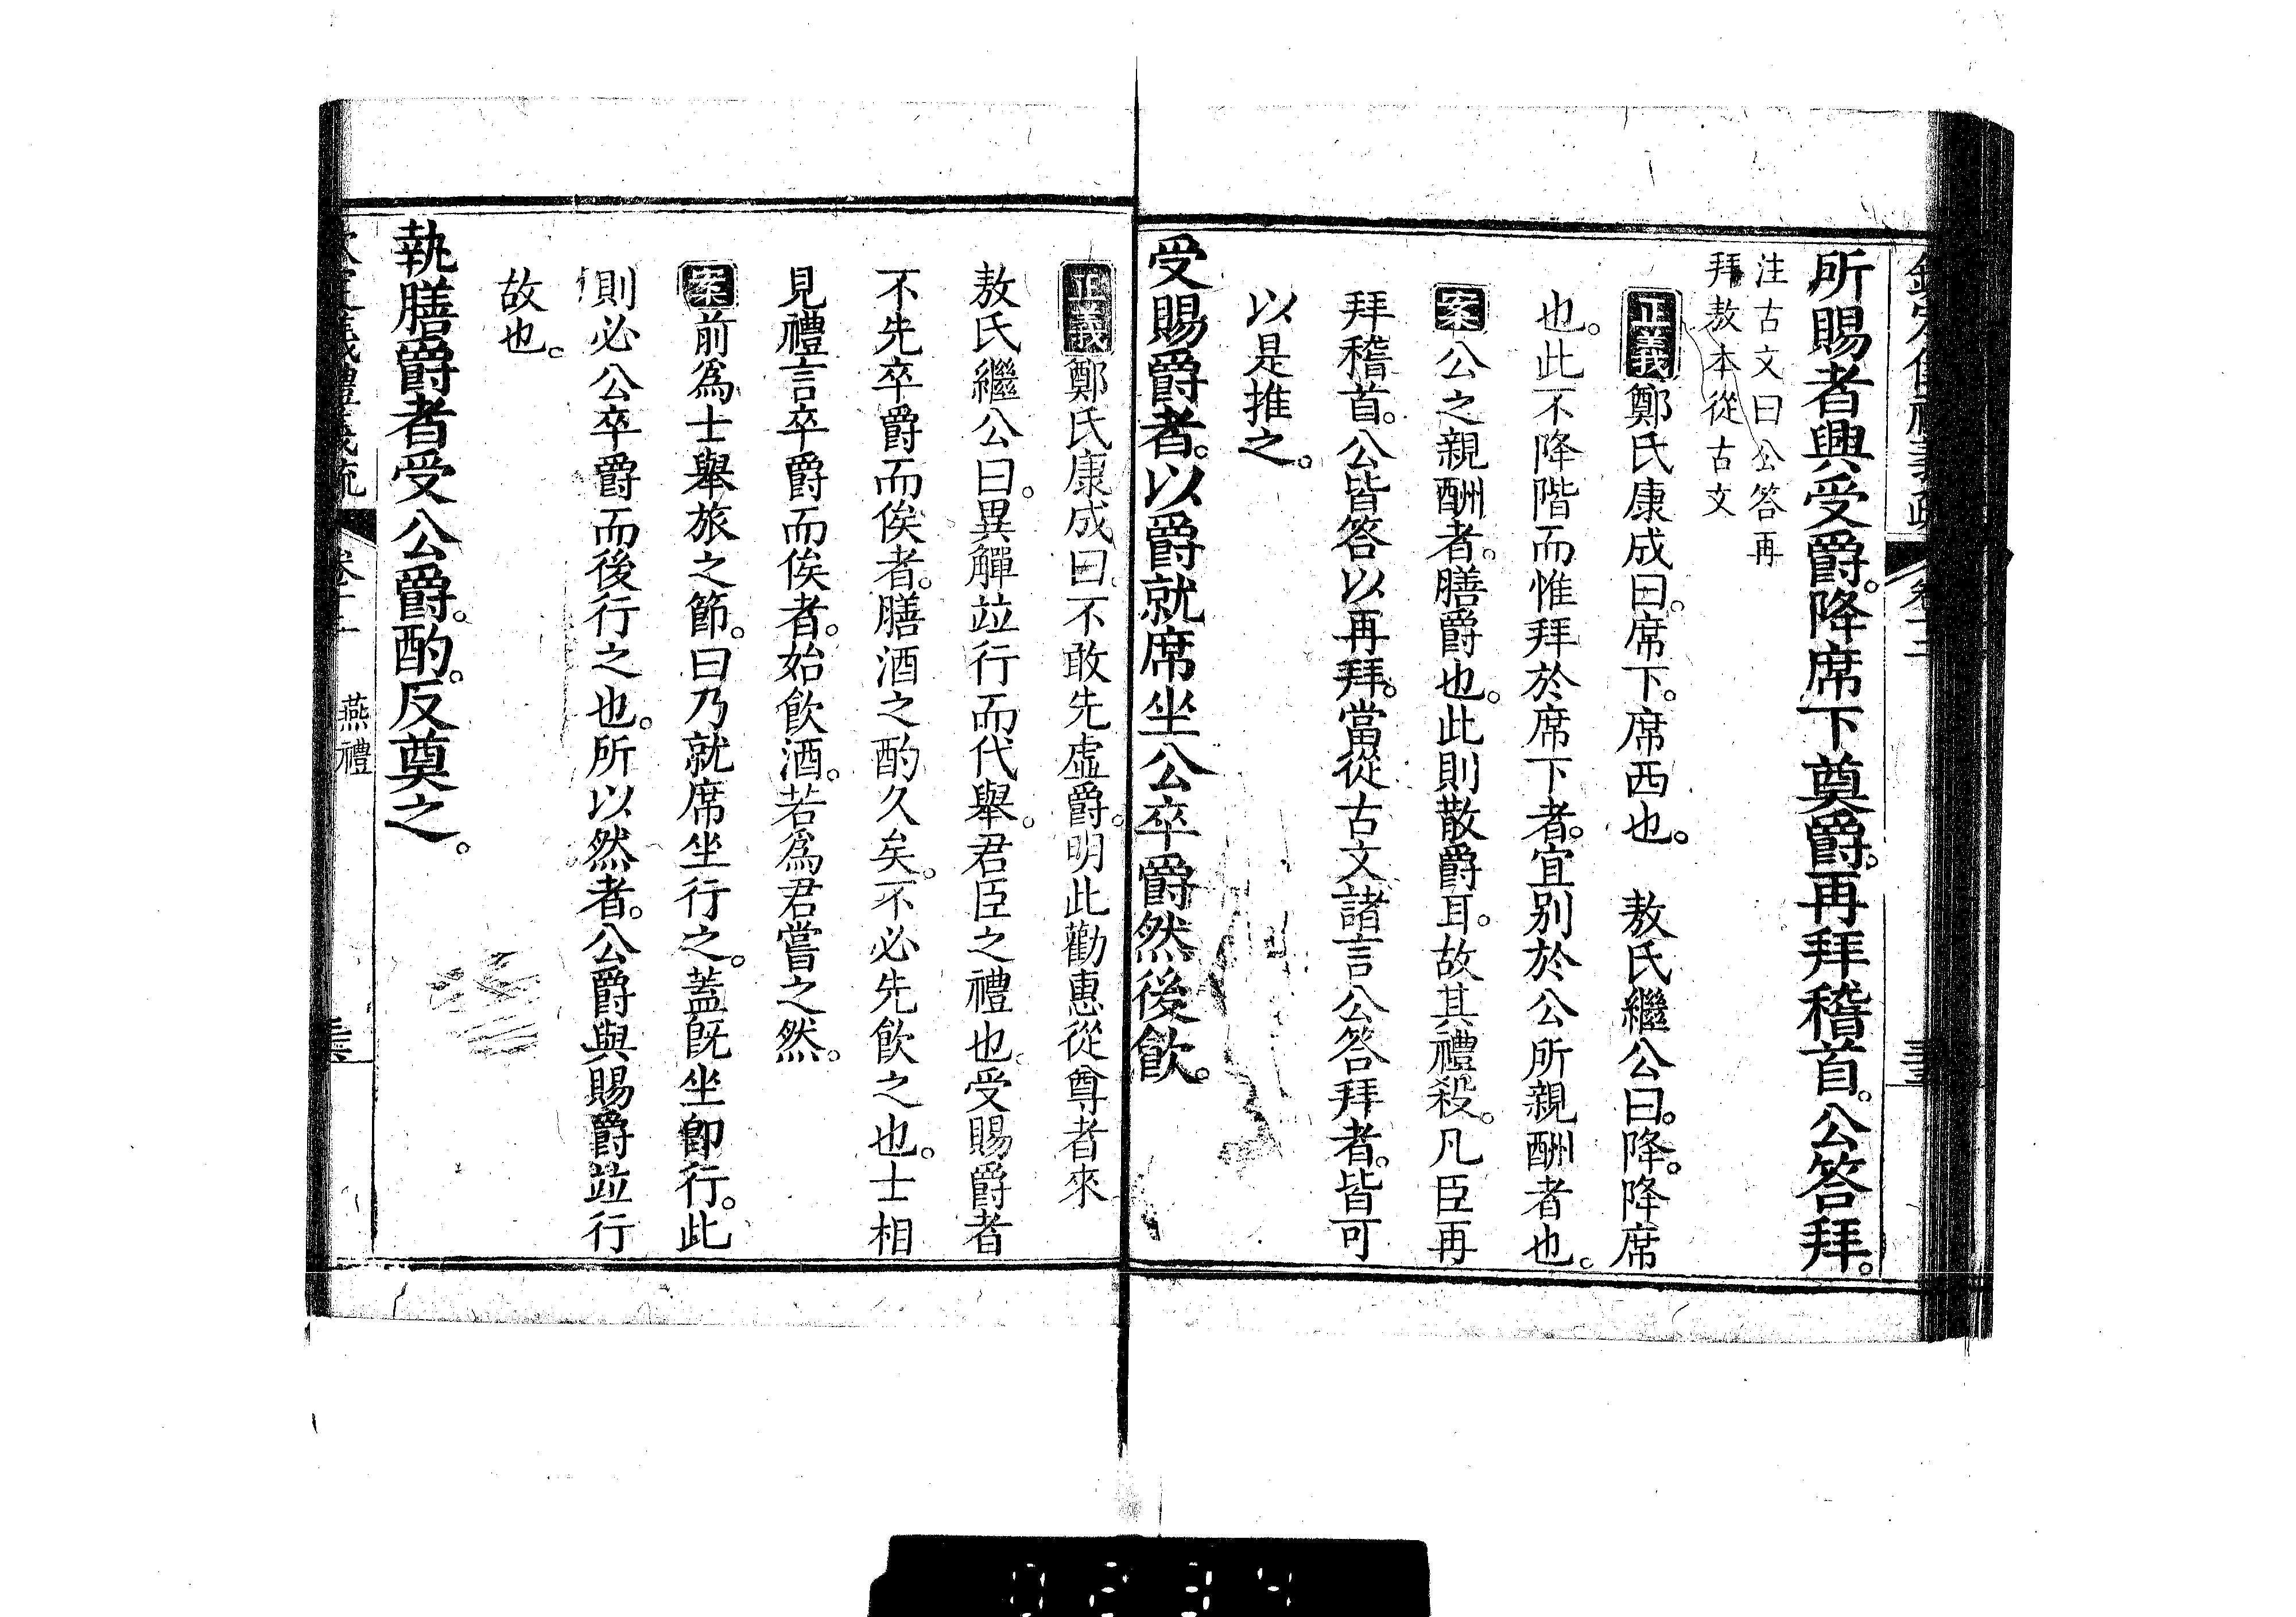 所賜者興受爵。降席下奠爵。再拜稽首。公答拜。
注古文曰公答再
拜敖本從古文
正義鄭氏康成曰。席下。席西也。　敖氏繼公曰。降。降席
也。此不降階而惟拜於席下者。宜別於公所親酬者也。
案公之親酬者。膳爵也。此則散爵耳。故其禮殺。凡臣再
拜稽首。公皆答以再拜。當從古文諸言公答拜者。皆可
以是推之。
受賜爵者。以爵就席坐公卒爵然後飲。
正義鄭氏康成曰。不敢先虛爵。明此勸惠從尊者來
敖氏繼公曰。異觶竝行而代舉。君臣之禮也。受賜爵者
不先卒爵而俟者。膳酒之酌久矣。不必先飲之也。士相
見禮言卒爵而俟者。始飲酒。若爲君嘗之然。
案前爲士舉旅之節。曰乃就席坐行之。蓋旣坐卽行。此
則必公卒爵而後行之也。所以然者。公爵與賜爵竝行
故也。
執膳爵者受公爵。酌。反奠之。
燕禮